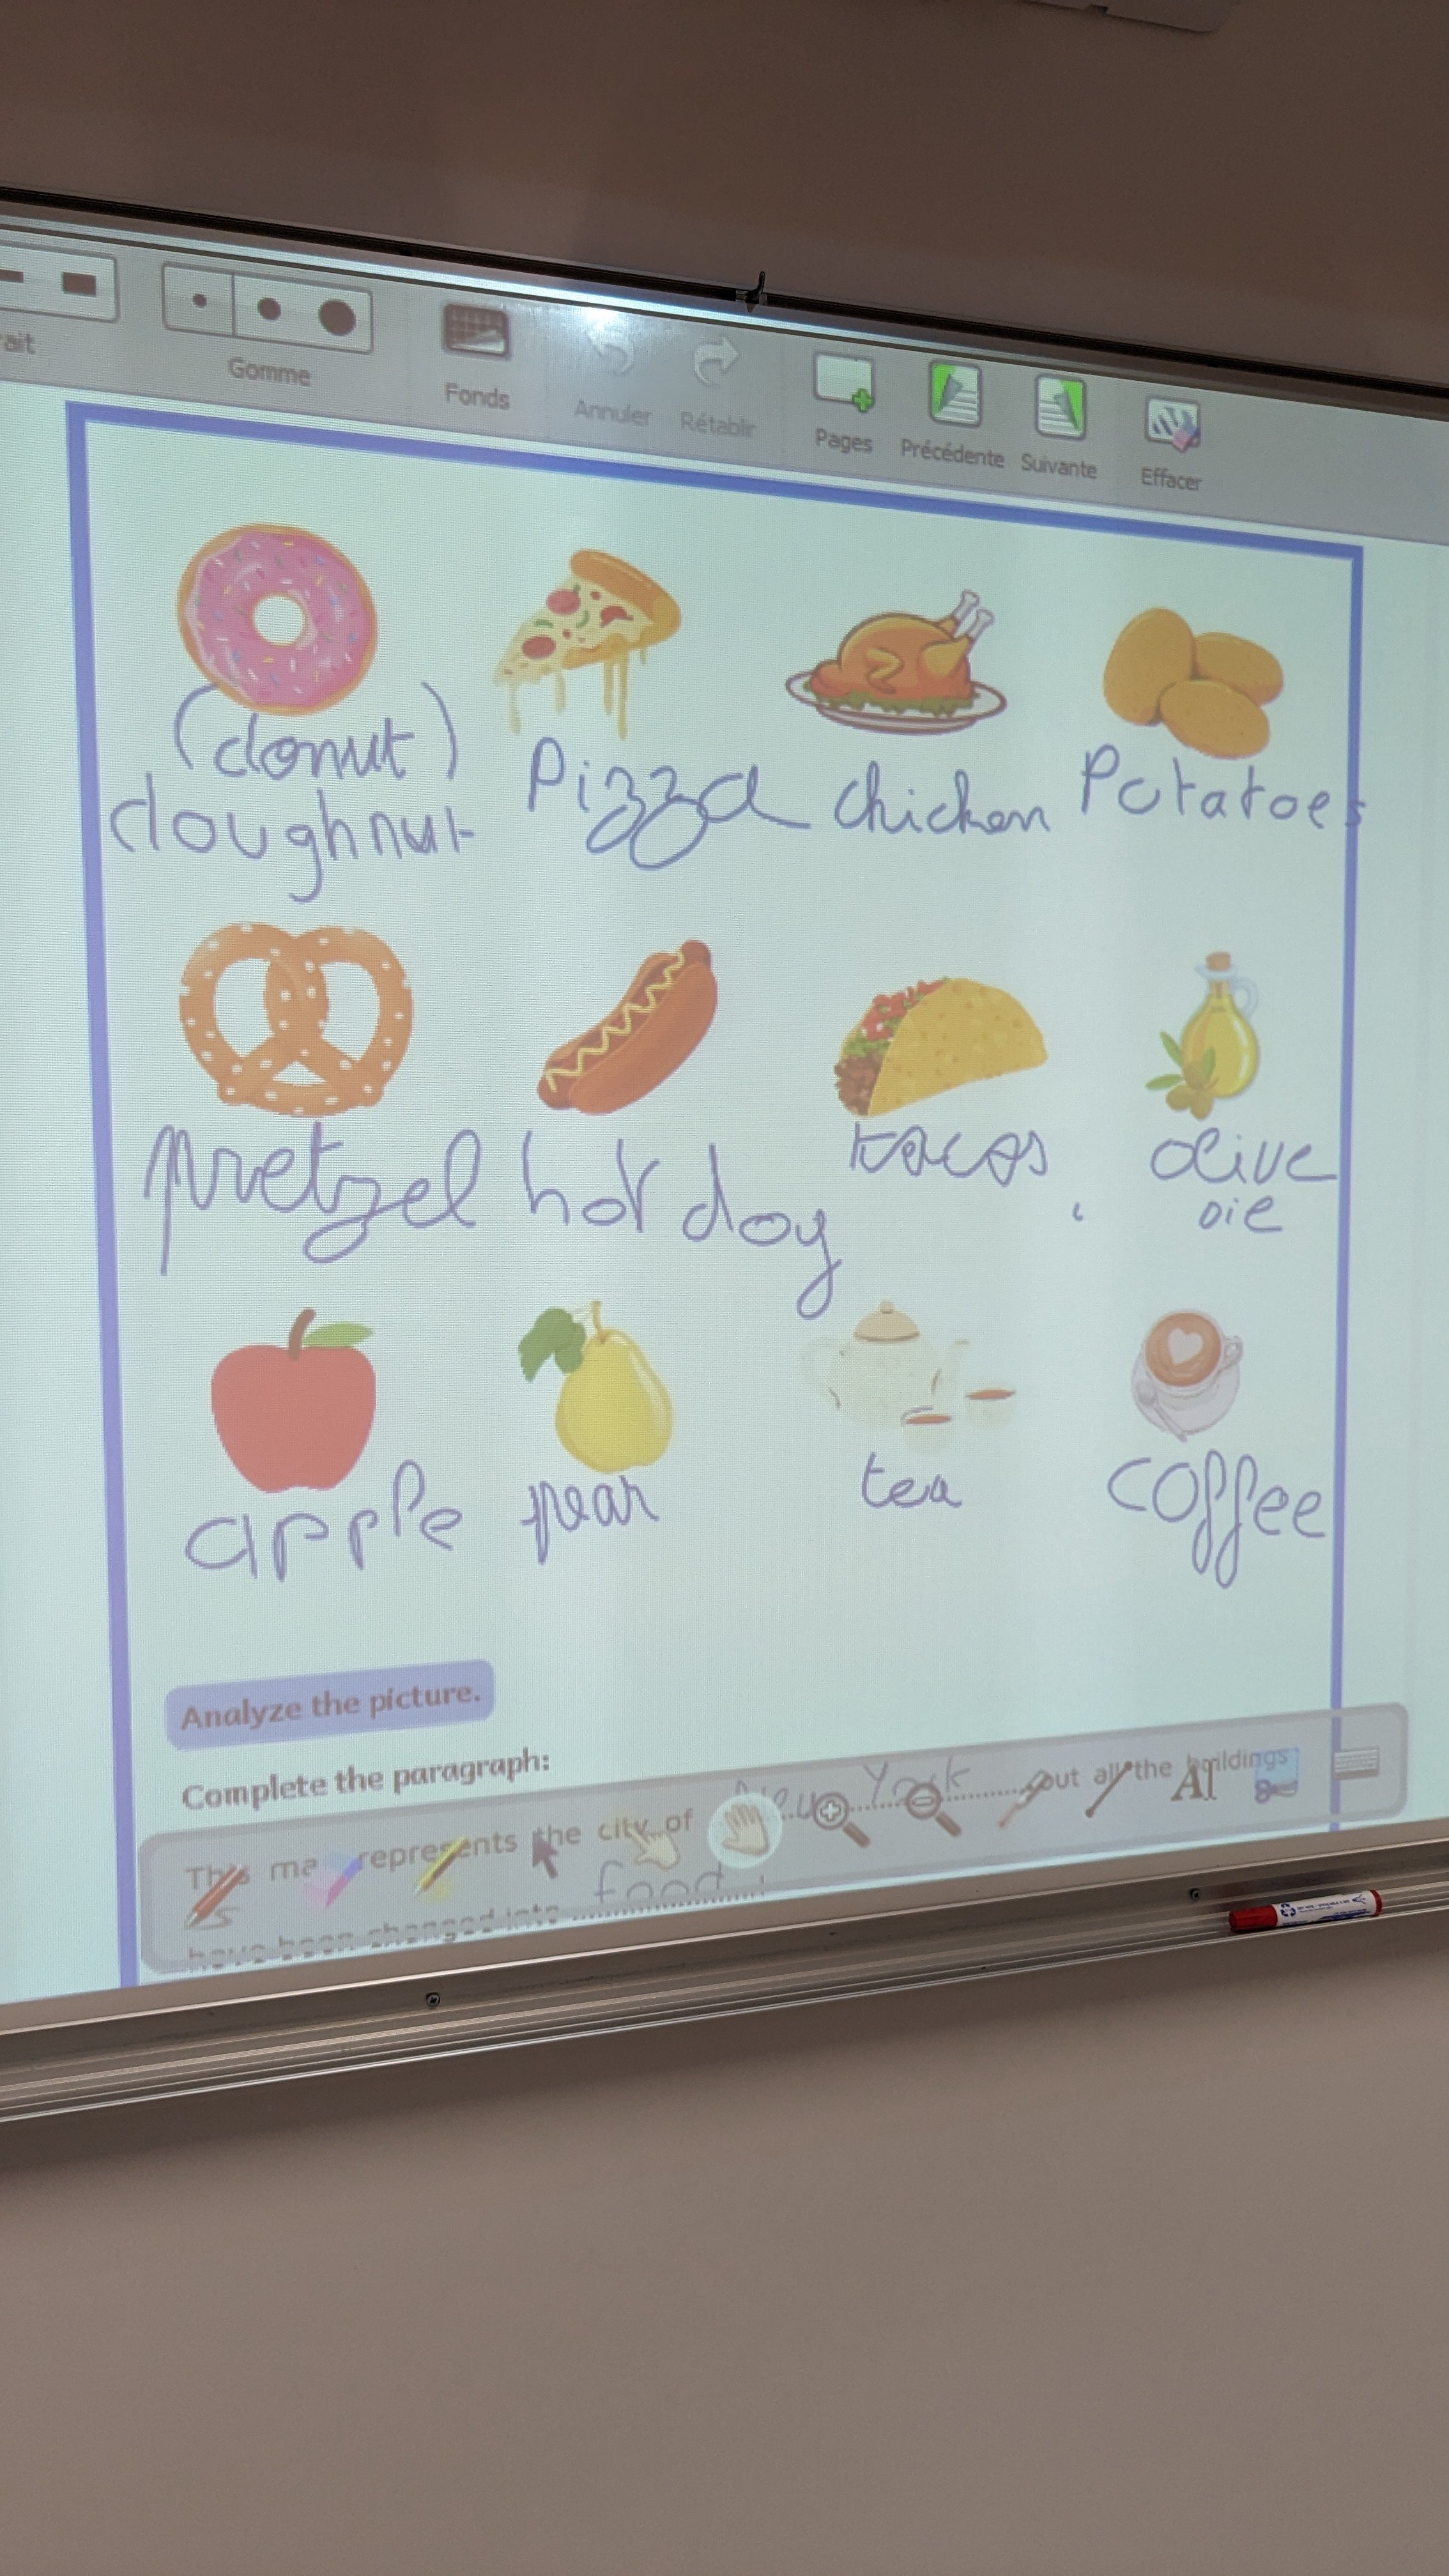 rait
Gomme
Fonds
Annuler
Rétablir
Pages
Précédente
Suivante
Effacer
(donut)
doughnut
Pizza
chicken
Potatoes
pretzel
hot dog
tacos
olive
oil
apple
pear
tea
coffee
Analyze the picture.
Complete the paragraph:
This represents the city of New York but all the buildings
have been changed into food
AI